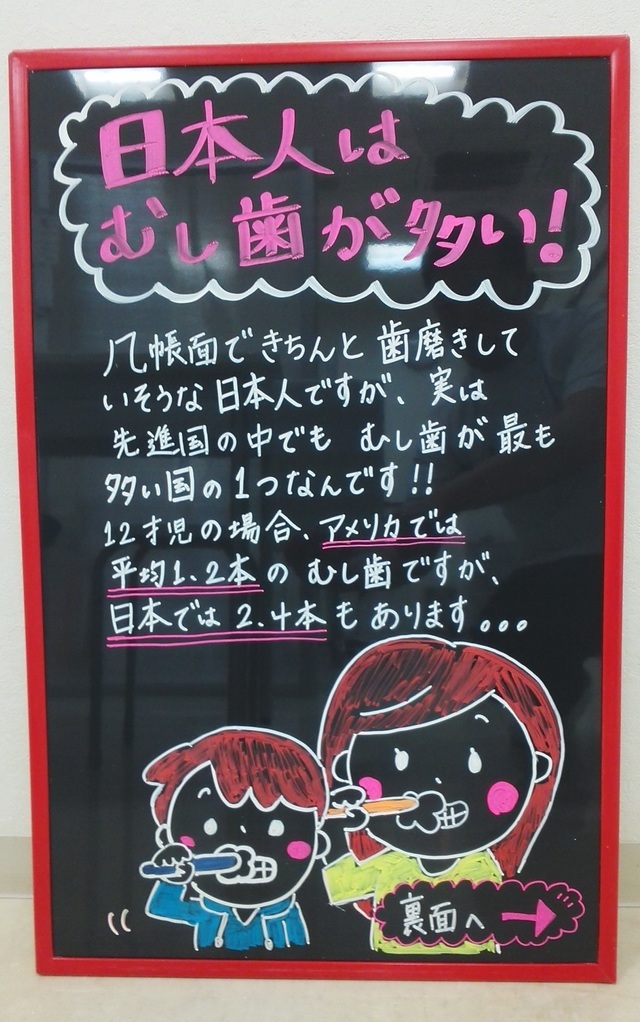 日本人は
むし歯が多い!
几帳面できちんと歯磨きして
いそうな日本人ですが、実は
先進国の中でも むし歯が最も
多い国の1つなんです!!
12才児の場合、アメリカでは
平均1.2本の むし歯ですが、
日本では 2.4本もあります...
裏面へ→